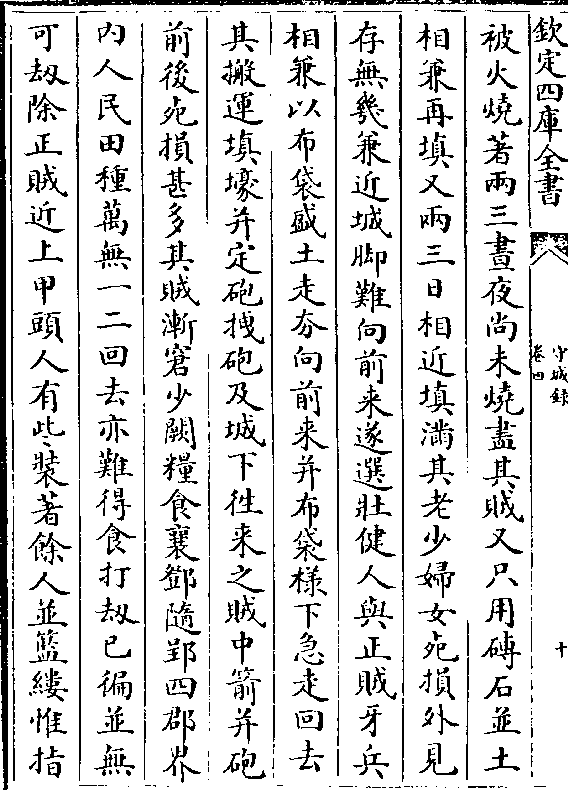 欽定四庫全書
守城録
卷四
十
被火燒著兩三晝夜尚未燒盡其賊又只用磚石並土
相兼再填又兩三日相近填滿其老少婦女死損外見
存無幾兼近城脚難向前来遂選壯健人與正賊牙兵
相兼以布袋盛土走夯向前来并布袋様下急走回去
其搬運填壕并定砲拽砲及城下徃来之賊中箭并砲
前後死損甚多其賊漸窘少闕糧食襄鄧隨郢四郡界
内人民田種萬無一二回去亦難得食打刼已徧並無
可刼除正賊近上甲頭人有些裝著餘人並籃縷惟指